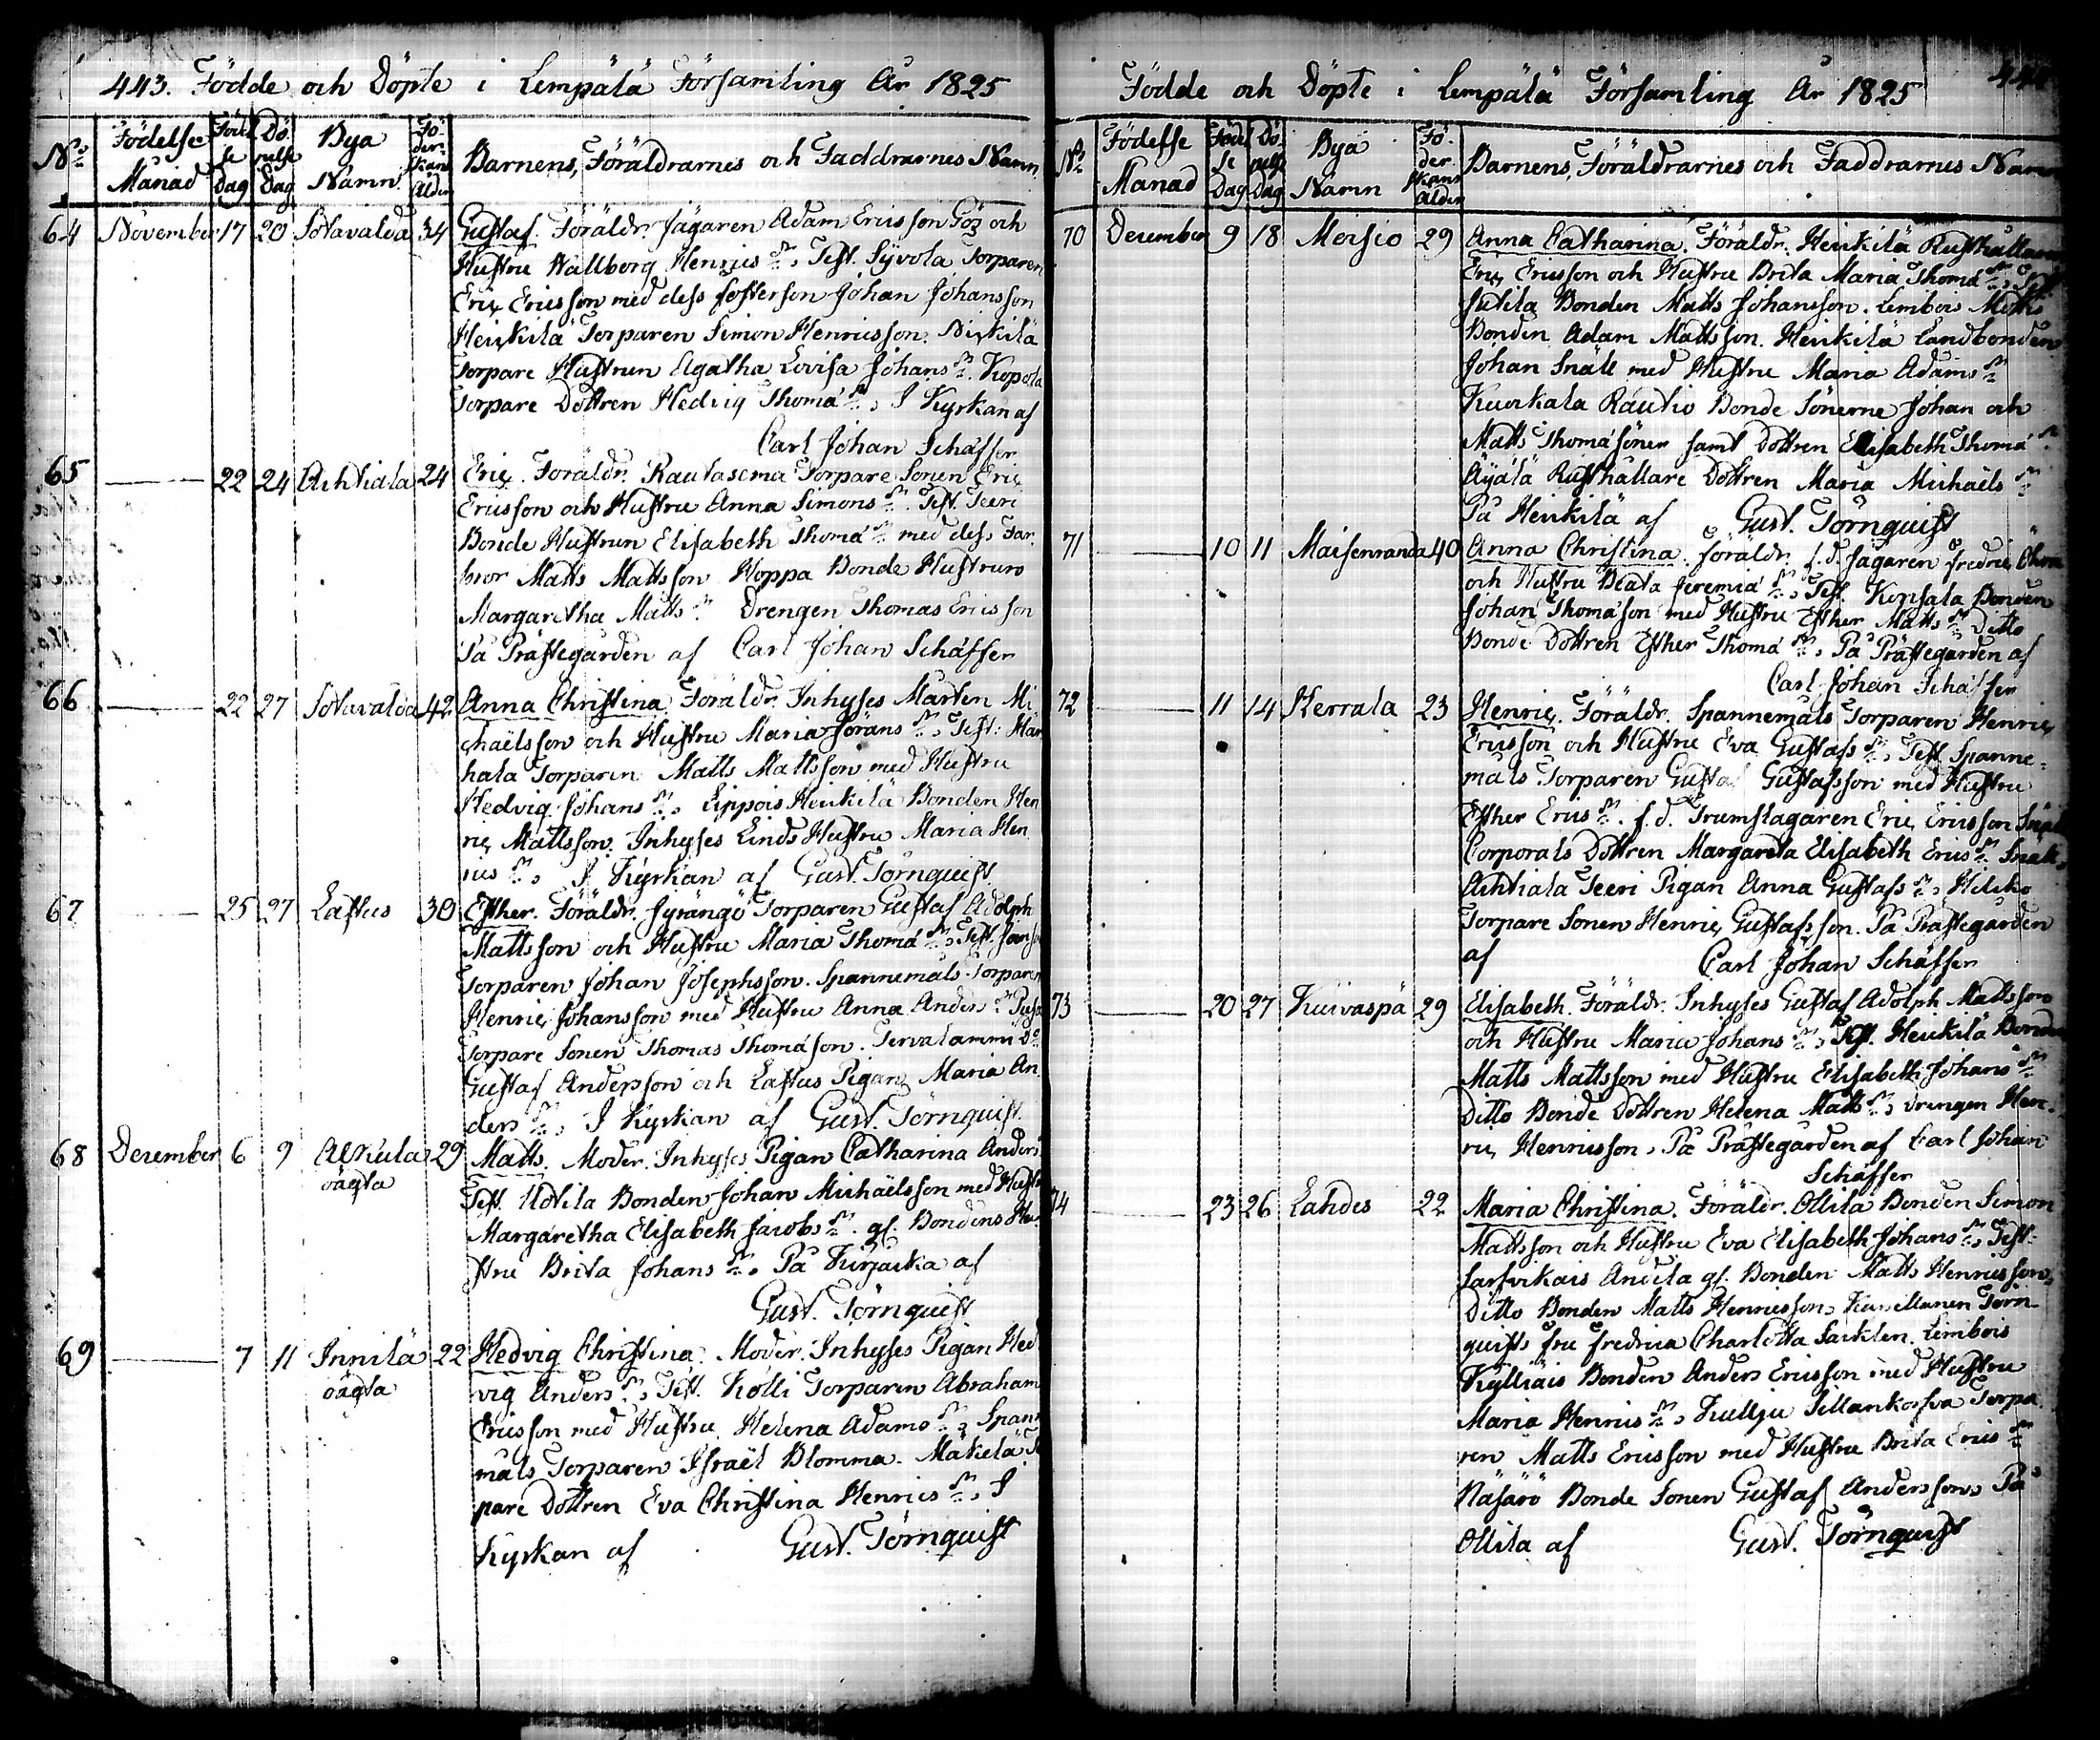 443. Födde och Döpte i Lempälä Församling År 1825
No Födelse Månad Födelse Dag Döpelse Dag Bya Namn Föderskans Ålder Barnens, Föräldrarnes och Faddrarnes Namn
64 November 17 20 Sotavalda 34 Gustaf. Föräldr. Jägaren Adam Ericsson Göz och
Hustru Wallborg Henrics Dr, Test. Syvola Torparen
Eric Ericsson med dess systerson Johan Johansson
Heikkilä Torparen Simon Henricsson. Nickilä
Torpare Hustrun Agatha Lovisa Johans Dr. Kopola
Torpare Dottren Hedvig Thomæ Dr, I Kyrkan af
Carl Johan Schäffer
65 22 24 Achtiala 24 Eric. Föräldr. Rautasema Torpare Sonen Eric
Ericsson och Hustru Anna Simons Dr. Test. Teeri
Bonde Hustrun Elisabeth Thomæ Dr med dess Far
bror Matts Mattsson Hoppa Bonde Hustrun
Margaretha Matts Dr Drengen Thomas Ericsson
På Prästegården af Carl Johan Schäffer
66 22 27 Sotavalda 42 Anna Christina. Föräldr. Inhyses Mårten Mi
chaëlsson och Hustru Maria Jörans Dr, Test:
hala Torparen Matts Mattsson med Hustru
Hedvig Johans Dr, Lippois Heickilä Bonden Hen
ric Mattsson. Inhyses Linds Hustru Maria Hen
rics Dr, I Kyrkan af Gust. Törnquist
67 25 27 Lastus 30 Esther. Föräldr. Jyrängö Torparen Gustaf Adolph
Mattsson och Hustru Maria Thomæ Dr, Test.
Torparen Johan Josephsson. Spannemåls Torparen
Henric Johansson med Hustru Anna Anders Dr
Torpare Sonen Thomas Thomæson. Tervalammi Do
Gustaf Andersson och Lastus Pigan Maria An
ders Dr, I Kyrkan af Gust. Törnquist.
68 December 6 9 Alkula 29 Matts. Moder. Inhyses Pigan Catharina Anders
oägta Test. Uotila Bonden Johan Michaëlsson med Hust
Margaretha Elisabeth Jacobs Dr. gl. Bondens Hu
stru Brita Johans Dr, På Kirjaska af
Gust. Törnquist
69 7 11 Innilä 22 Hedvig Christina. Moder. Inhyses Pigan Hed
oägta vig Anders Dr, Test. Kölli Torparen Abraham
Ericsson med Hustru Helena Adams Dr, Spann
måls Torparen Israël Blomma. Mäkelä To
pare Dottren Eva Christina Henrics Dr, I
Kyrkan af Gust. Törnquist
Födde och Döpte i Lempälä Församling År 1825 444
No Födelse Månad Födelse Dag Döpelse Dag Bya Namn Föderskans Ålder Barnens, Föräldrarnes och Faddrarnes Namn
70 December 9 18 Moisio 29 Anna Catharina. Föräldr. Heickilä Rusthållaren
Eric Ericsson och Hustru Brita Maria Thomæ Dr, Test
Jutila Bonden Matts Johansson. Lembois
Bonden Adam Mattsson. Heickilä Landbonden
Johan Snäll med Hustru Maria Adams Dr
Kuokala Rautio Bonde Sönerne Johan och
Matts Thomæsöner samt Dottren Elisabeth Thomæ Dr.
Äyälä Rusthållare Dottren Maria Michaëls Dr
På Heickilä af Gust. Törnquist
71 10 11 Maisenranda 40 Anna Christina. Föräldr. f.d. Jägaren Fredric
och Hustru Beata Jeremiæ Dr, Test. Konsala Bonden
Johan Thomæson med Hustru Esther Matts Dr Ditto
Bonde Dottren Esther Thomæ Dr, På Prästegården af
Carl Johan Schäffer
72 11 14 Kerrala 23 Henric. Föräldr. Spannemåls Torparen Henric
Ericsson och Hustru Eva Gustafs Dr, Test. Spanne-
måls Torparen Gustaf Gustafsson med Hustru
Esther Erics Dr. f.d. Trumslagaren Eric Ericsson
Corporals Dottren Margareta Elisabeth Erics Dr
Achtiala Teeri Pigan Anna Gustafs Dr,
Torpare Sonen Henric Gustafsson. På Prästegården
af Carl Johan Schäffer
73 20 27 Kuivaspä 29 Elisabeth. Föräldr. Inhyses Gustaf Adolph Mattsson
och Hustru Maria Johans Dr, Test. Heickilä Bonden
Matts Mattsson med Hustru Elisabeth Johans Dr
Ditto Bonde Dottren Helena Matts Dr, Drengen Hen-
ric Henricsson, På Prästegården af Carl Johan
Schäffer
74 23 26 Lahdes 22 Maria Christina. Föräldr. Ollila Bonden Simon
Mattsson och Hustru Eva Elisabeth Johans Dr, Test:
Sarfvikais Anttila gl. Bonden Matts Henricsson,
Ditto Bonden Matts Henricsson, Törn-
quists fru Fredrica Charlotta Lembois
Kylliäis Bonden Anders Ericsson med Hustru
Maria Henrics Dr, Kuljju Sillankorfva Torpa
ren Matts Ericsson med Hustru Brita Erics Dr
Näsärö Bonde Sonen Gustaf Andersson, På
Ollila af Gust. Törnquist